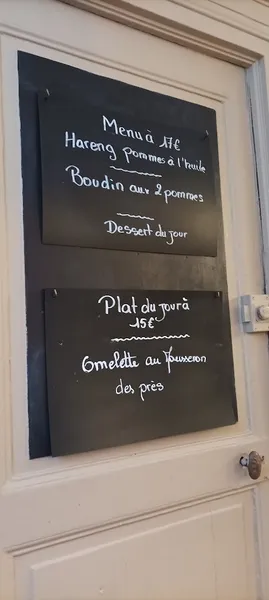 Menu à 17€
Hareng pommes à l'huile
Boudin aux 2 pommes
Dessert du jour
Plat du jour à
15€
Omelette au Mousseron
des près